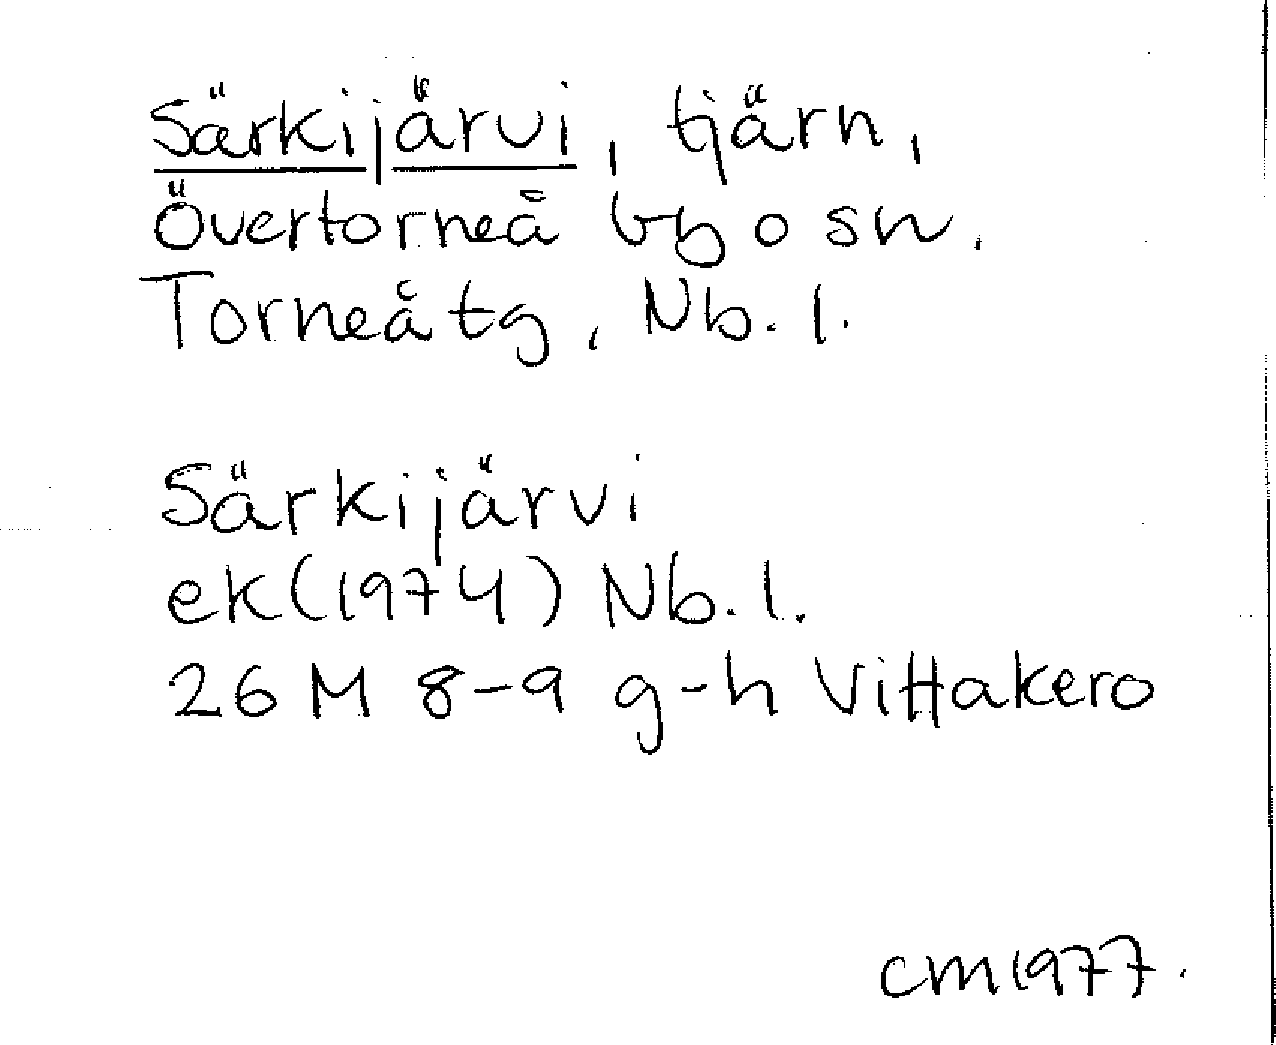 Särkijärvi, tjärn,
Övertorneå by o sn.
Torneå tg, Nb. l.
Särkijärvi
ek (1974) Nb. l.
26 M 8-9 g-h Vittakero
CM 1977.